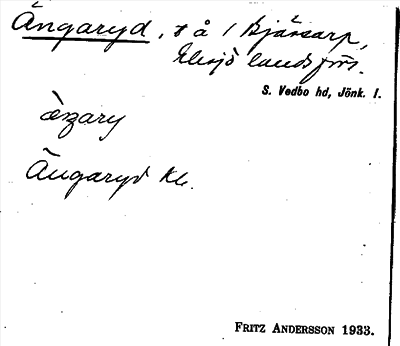 Ängaryd, t å / Bjäsarp,
Eksjö landsförs.
S. Vedbo hd, Jönk. l.
äŋary
Ängaryd Kk.
FRITZ ANDERSSON 1933.